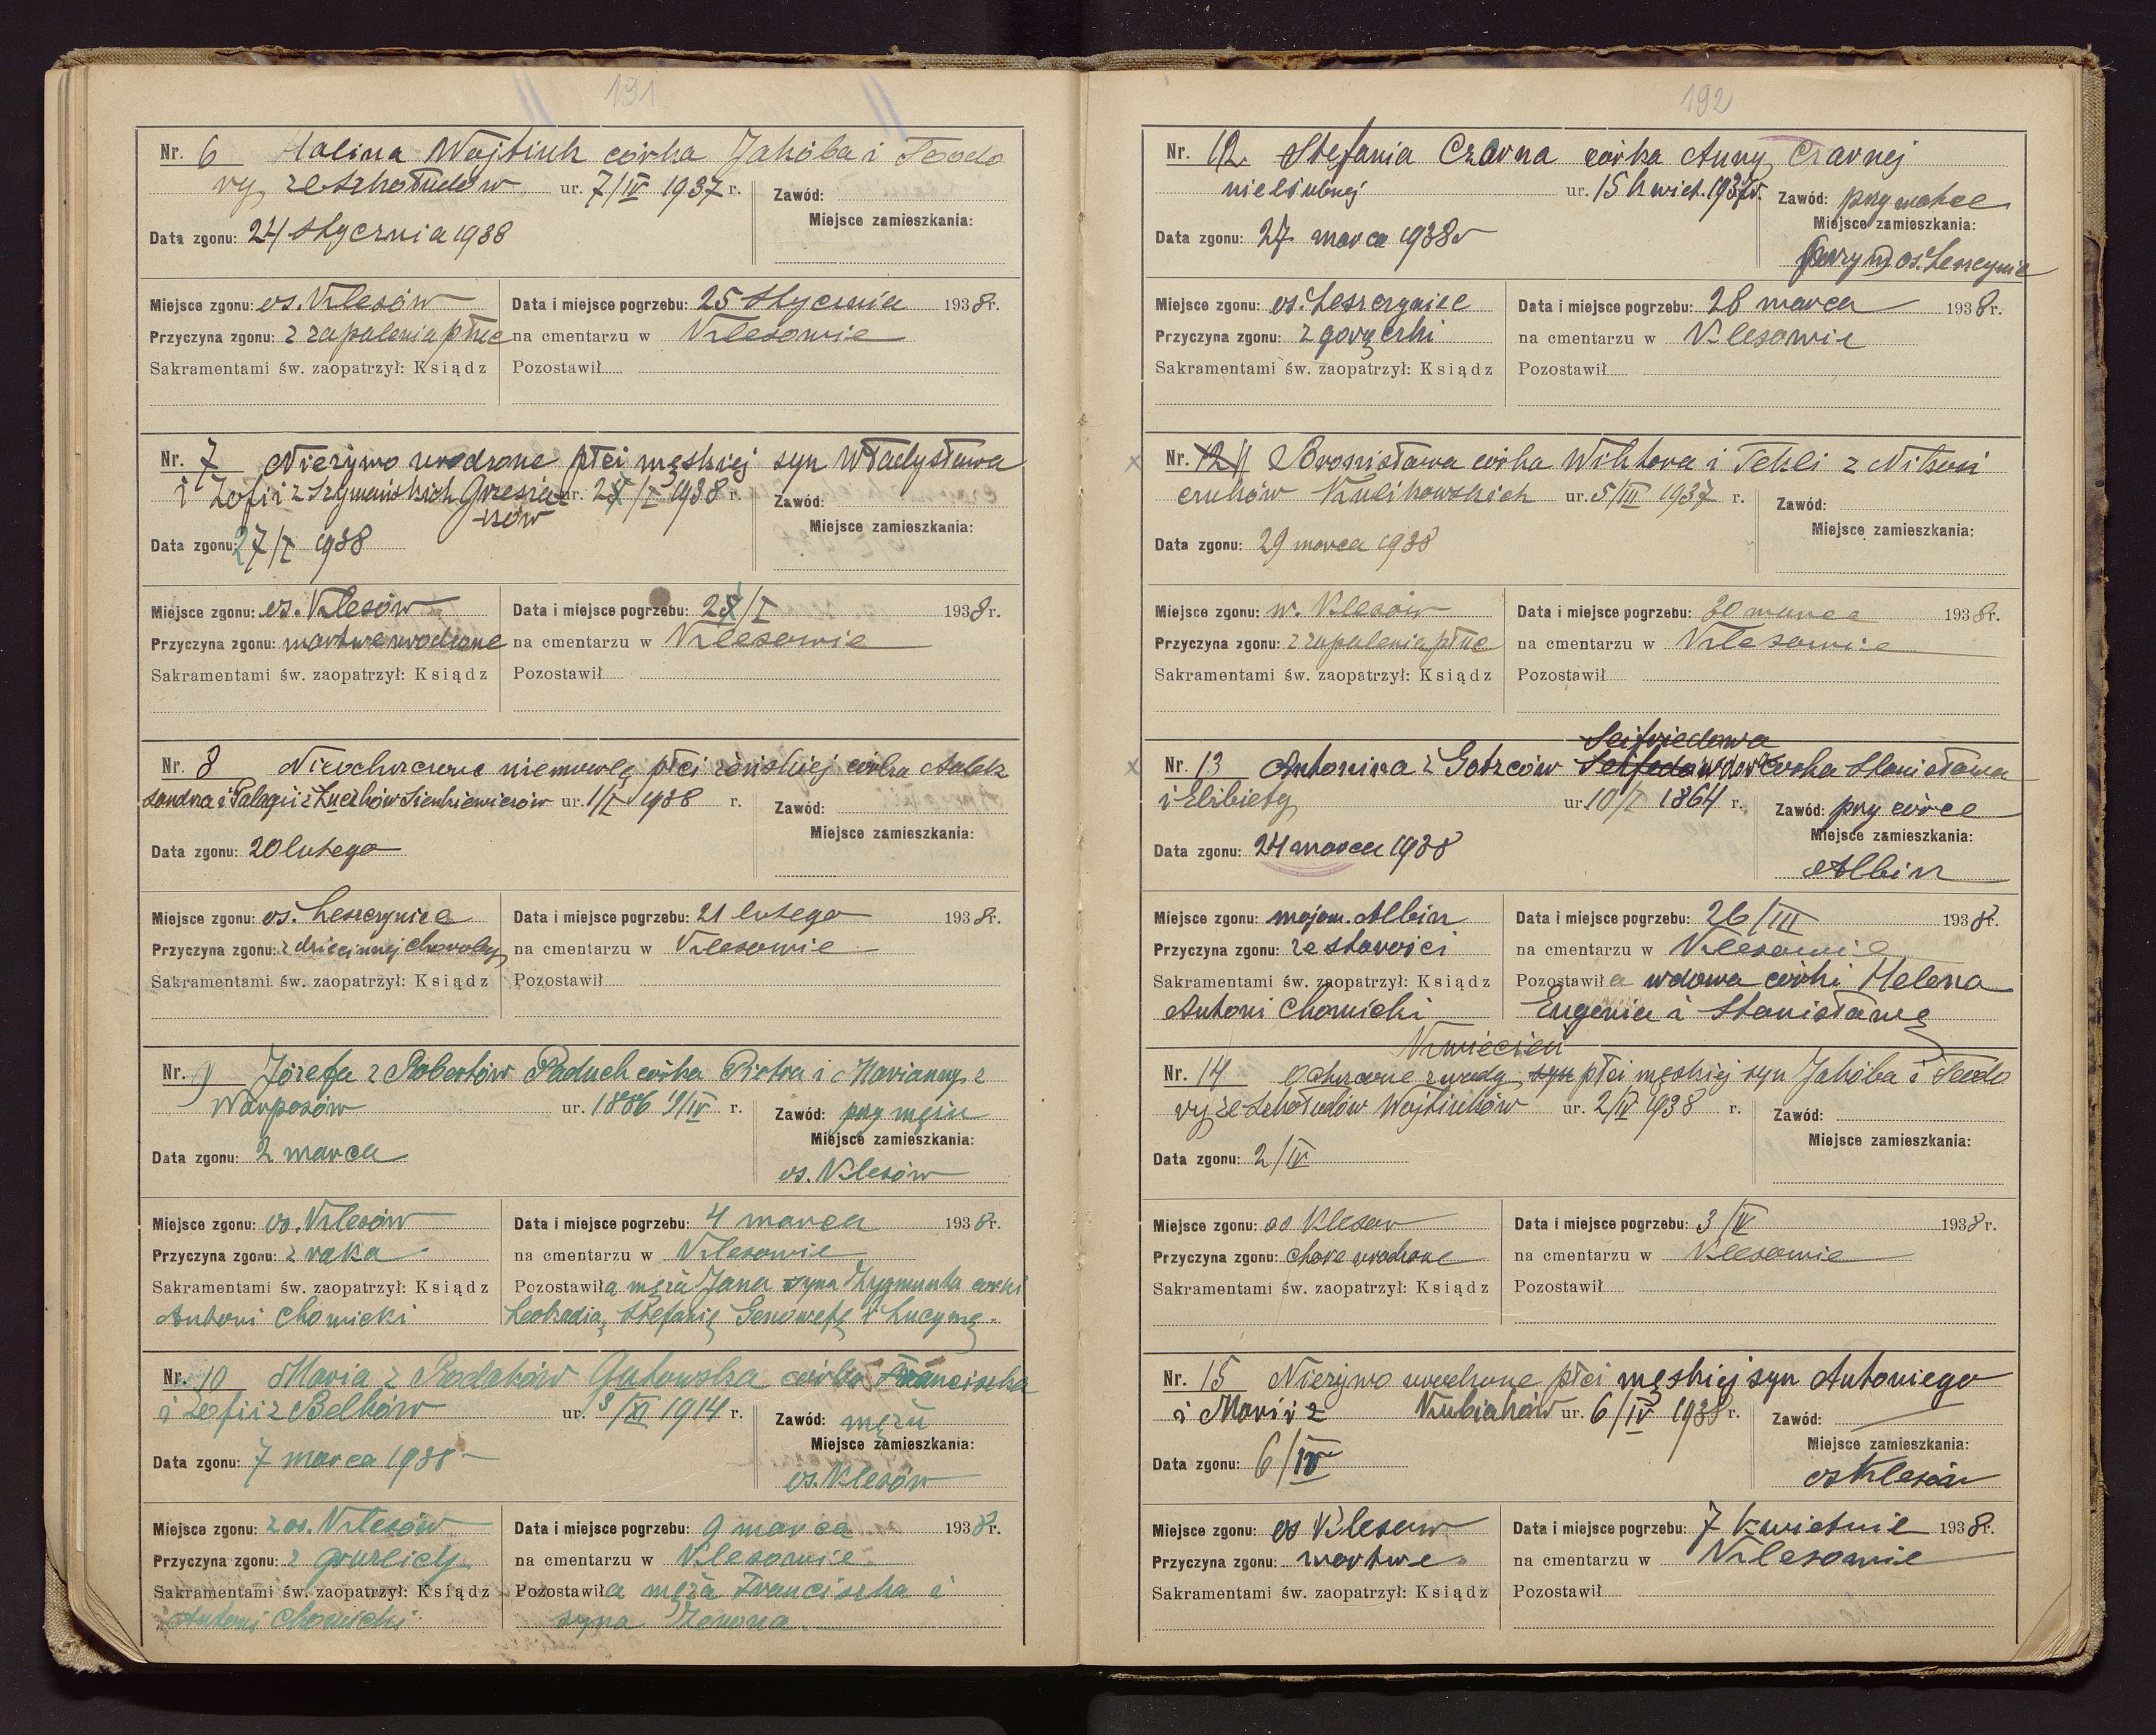 191
Nr. 6 Halina Wojtiuk córka Jakóba i Teodo
ry ze Szkołudów ur. 7/IV 1937 r.
Zawód:
Miejsce zamieszkania:
Data zgonu: 24 stycznia 1938
Miejsce zgonu: os. Klesów
Data i miejsce pogrzebu: 25 stycznia 1938 r.
Przyczyna zgonu: z zapalenia płuc
na cmentarzu w Klesowie
Sakramentami św. zaopatrzył: Ksiądz
Pozostawił
Nr. 7 Nieżywo urodzone płci męskiej syn Władysława
i Zofii z Szymańskich Grzesia
ków
ur. /I 1938 r.
Zawód:
Miejsce zamieszkania:
Data zgonu: 27/I 1938
Miejsce zgonu: os. Klesów
Data i miejsce pogrzebu: /I 1938 r.
Przyczyna zgonu: martwe urodzone
na cmentarzu w Klesowie
Sakramentami św. zaopatrzył: Ksiądz
Pozostawił
Nr. 8 Nieochrzczone niemowlę płci żeńskiej córka Alek
sandra i Palagii z Sienkiewiczów ur. 1/I 1938 r.
Zawód:
Miejsce zamieszkania:
Data zgonu: 20 lutego
Miejsce zgonu: os. Leszczyniec
Data i miejsce pogrzebu: 21 lutego 1938 r.
Przyczyna zgonu: z dziecinnej choroby
na cmentarzu w Klesowie
Sakramentami św. zaopatrzył: Ksiądz
Pozostawił
Nr. 9 Józefa z Robertów Paduch córka Piotra i Marianny z
Warposów ur. 1886 9/IV r.
Zawód: przy mężu
Miejsce zamieszkania:
os. Klesów
Data zgonu: 2 marca
Miejsce zgonu: os. Klesów
Data i miejsce pogrzebu: 4 marca 1938 r.
Przyczyna zgonu: z raka
na cmentarzu w Klesowie
Sakramentami św. zaopatrzył: Ksiądz
Antoni Chomicki
Pozostawiła męża Jana syna Zygmunta córki
Leokadią, Stefanię Genowefę i Lucynę.
Nr. 10 Maria z Gutowska córka Franciszka
i Zofii z Belków ur. 3/XI 1914 r.
Zawód: mężu
Miejsce zamieszkania:
os. Klesów
Data zgonu: 7 marca 1938
Miejsce zgonu: z os. Klesów
Data i miejsce pogrzebu: 9 marca 1938 r.
Przyczyna zgonu: z gruźlicy
na cmentarzu w Klesowie
Sakramentami św. zaopatrzył: Ksiądz
Antoni Chomicki
Pozostawiła męża Franciszka i
syna Zenona.
192
Nr. 12 Stefania Czarna córka Anny Czarnej
nieślubnej ur. 15 kwiet. 1937 r.
Zawód: przy matce
Miejsce zamieszkania:
os. Leszczynie
Data zgonu: 27 marca 1938 r
Miejsce zgonu: os. Leszczyniec
Data i miejsce pogrzebu: 28 marca 1938 r.
Przyczyna zgonu: z gorączki
na cmentarzu w Klesowie
Sakramentami św. zaopatrzył: Ksiądz
Pozostawił
x Nr. 12 11 Bronisława córka Wiktora i Tekli z Nikoni
czuków Kulikowskich ur. 5/III 1937 r.
Zawód:
Miejsce zamieszkania:
Data zgonu: 29 marca 1938
Miejsce zgonu: w. Klesów
Data i miejsce pogrzebu: 30 marca 1938 r.
Przyczyna zgonu: z zapalenia płuc
na cmentarzu w Klesowie
Sakramentami św. zaopatrzył: Ksiądz
Pozostawił
Seifriedowa
x Nr. 13 Antonina z Gotzców córka Stanisława
i Elżbiety ur. 10/I 1864 r.
Zawód: przy córce
Miejsce zamieszkania:
Albin
Data zgonu: 24 marca 1938
Miejsce zgonu: majom. Albin
Data i miejsce pogrzebu: 26/III 1938 r.
Przyczyna zgonu: ze starości
na cmentarzu w Klesowie
Sakramentami św. zaopatrzył: Ksiądz
Antoni Chomicki
Pozostawiła wdowa córki Helena
Eugenia i Stanisławę
Kwiecień
Nr. 14 Ochrzczone z wody syn płci męskiej syn Jakóba i Teodo
ry ze Szkołudów Wojtiuków ur. 2/IV 1938 r.
Zawód:
Miejsce zamieszkania:
Data zgonu: 2/IV
Miejsce zgonu: os Klesow
Data i miejsce pogrzebu: 3/IV 1938 r.
Przyczyna zgonu: chore urodzone
na cmentarzu w Klesowie
Sakramentami św. zaopatrzył: Ksiądz
Pozostawił
Nr. 15 Nieżywo urodzone płci męskiej syn Antoniego
i Marii z Kubiaków ur. 6/IV 1938 r.
Zawód:
Miejsce zamieszkania:
os Klesów
Data zgonu: 6/IV
Miejsce zgonu: os Klesow
Data i miejsce pogrzebu: 7 kwietnie 1938 r.
Przyczyna zgonu: martwe
na cmentarzu w Klesowie
Sakramentami św. zaopatrzył: Ksiądz
Pozostawił